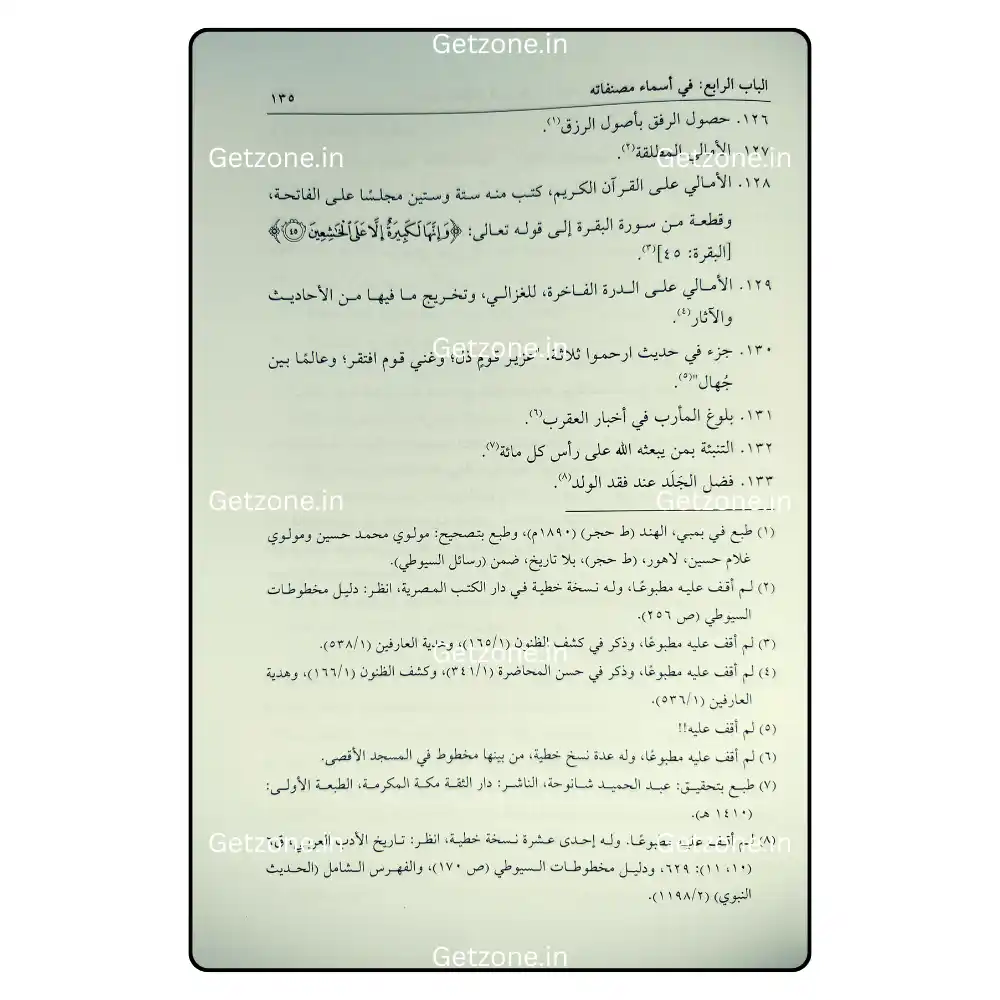 Getzone.in
الباب الرابع: في أسماء مصنفاته
١٣٥
١٢٦. حصول الرفق بأصول الرزق(١).
Getzone.in
Getzone.in
١٢٧. الأمالي المطلقة(٢).
١٢٨. الأمالي على القرآن الكريم، كتب منه ستة وستين مجلسًا على الفاتحة،
وقطعة من سورة البقرة إلى قوله تعالى: ﴿وَإِنَّهَا لَكَبِيرَةٌ إِلَّا عَلَى ٱلْخَٰشِعِينَ ٤٥﴾
[البقرة: ٤٥](٣).
١٢٩. الأمالي على الدرة الفاخرة، للغزالي، وتخريج ما فيها من الأحاديث
والآثار(٤).
Getzone.in
١٣٠. جزء في حديث ارحموا ثلاثة: "عزيز قومٍ ذل؛ وغني قوم افتقر؛ وعالمًا بين
جُهال"(٥).
١٣١. بلوغ المأرب في أخبار العقرب(٦).
١٣٢. التنبئة بمن يبعثه الله على رأس كل مائة(٧).
١٣٣. فضل الجَلَد عند فقد الولد(٨).
Getzone.in
Getzone.in
(١) طبع في بمبي، الهند (ط حجر) (١٨٩٠م)، وطبع بتصحيح: مولوي محمد حسين ومولوي
غلام حسين، لاهور، (ط حجر)، بلا تاريخ، ضمن (رسائل السيوطي).
(٢) لم أقف عليه مطبوعًا، وله نسخة خطية في دار الكتب المصرية، انظر: دليل مخطوطات
السيوطي (ص ٢٥٦).
(٣) لم أقف عليه مطبوعًا، وذكر في كشف الظنون (١/١٦٥)، وهدية العارفين (١/٥٣٨).
Getzone.in
(٤) لم أقف عليه مطبوعًا، وذكر في حسن المحاضرة (١/٣٤١)، وكشف الظنون (١/١٦٦)، وهدية
العارفين (١/٥٣٦).
(٥) لم أقف عليه!!
(٦) لم أقف عليه مطبوعًا، وله عدة نسخ خطية، من بينها مخطوط في المسجد الأقصى.
(٧) طبع بتحقيق: عبد الحميد شانوحة، الناشر: دار الثقة مكة المكرمة، الطبعة الأولى:
(١٤١٠ هـ).
Getzone.in
Getzone.in
(٨) لم أقف عليه مطبوعًا. وله إحدى عشرة نسخة خطية، انظر: تاريخ الأدب العربي،
(١٠، ١١): ٦٢٩، ودليل مخطوطات السيوطي (ص ١٧٠)، والفهرس الشامل (الحديث
النبوي) (٢/١١٩٨).
Getzone.in